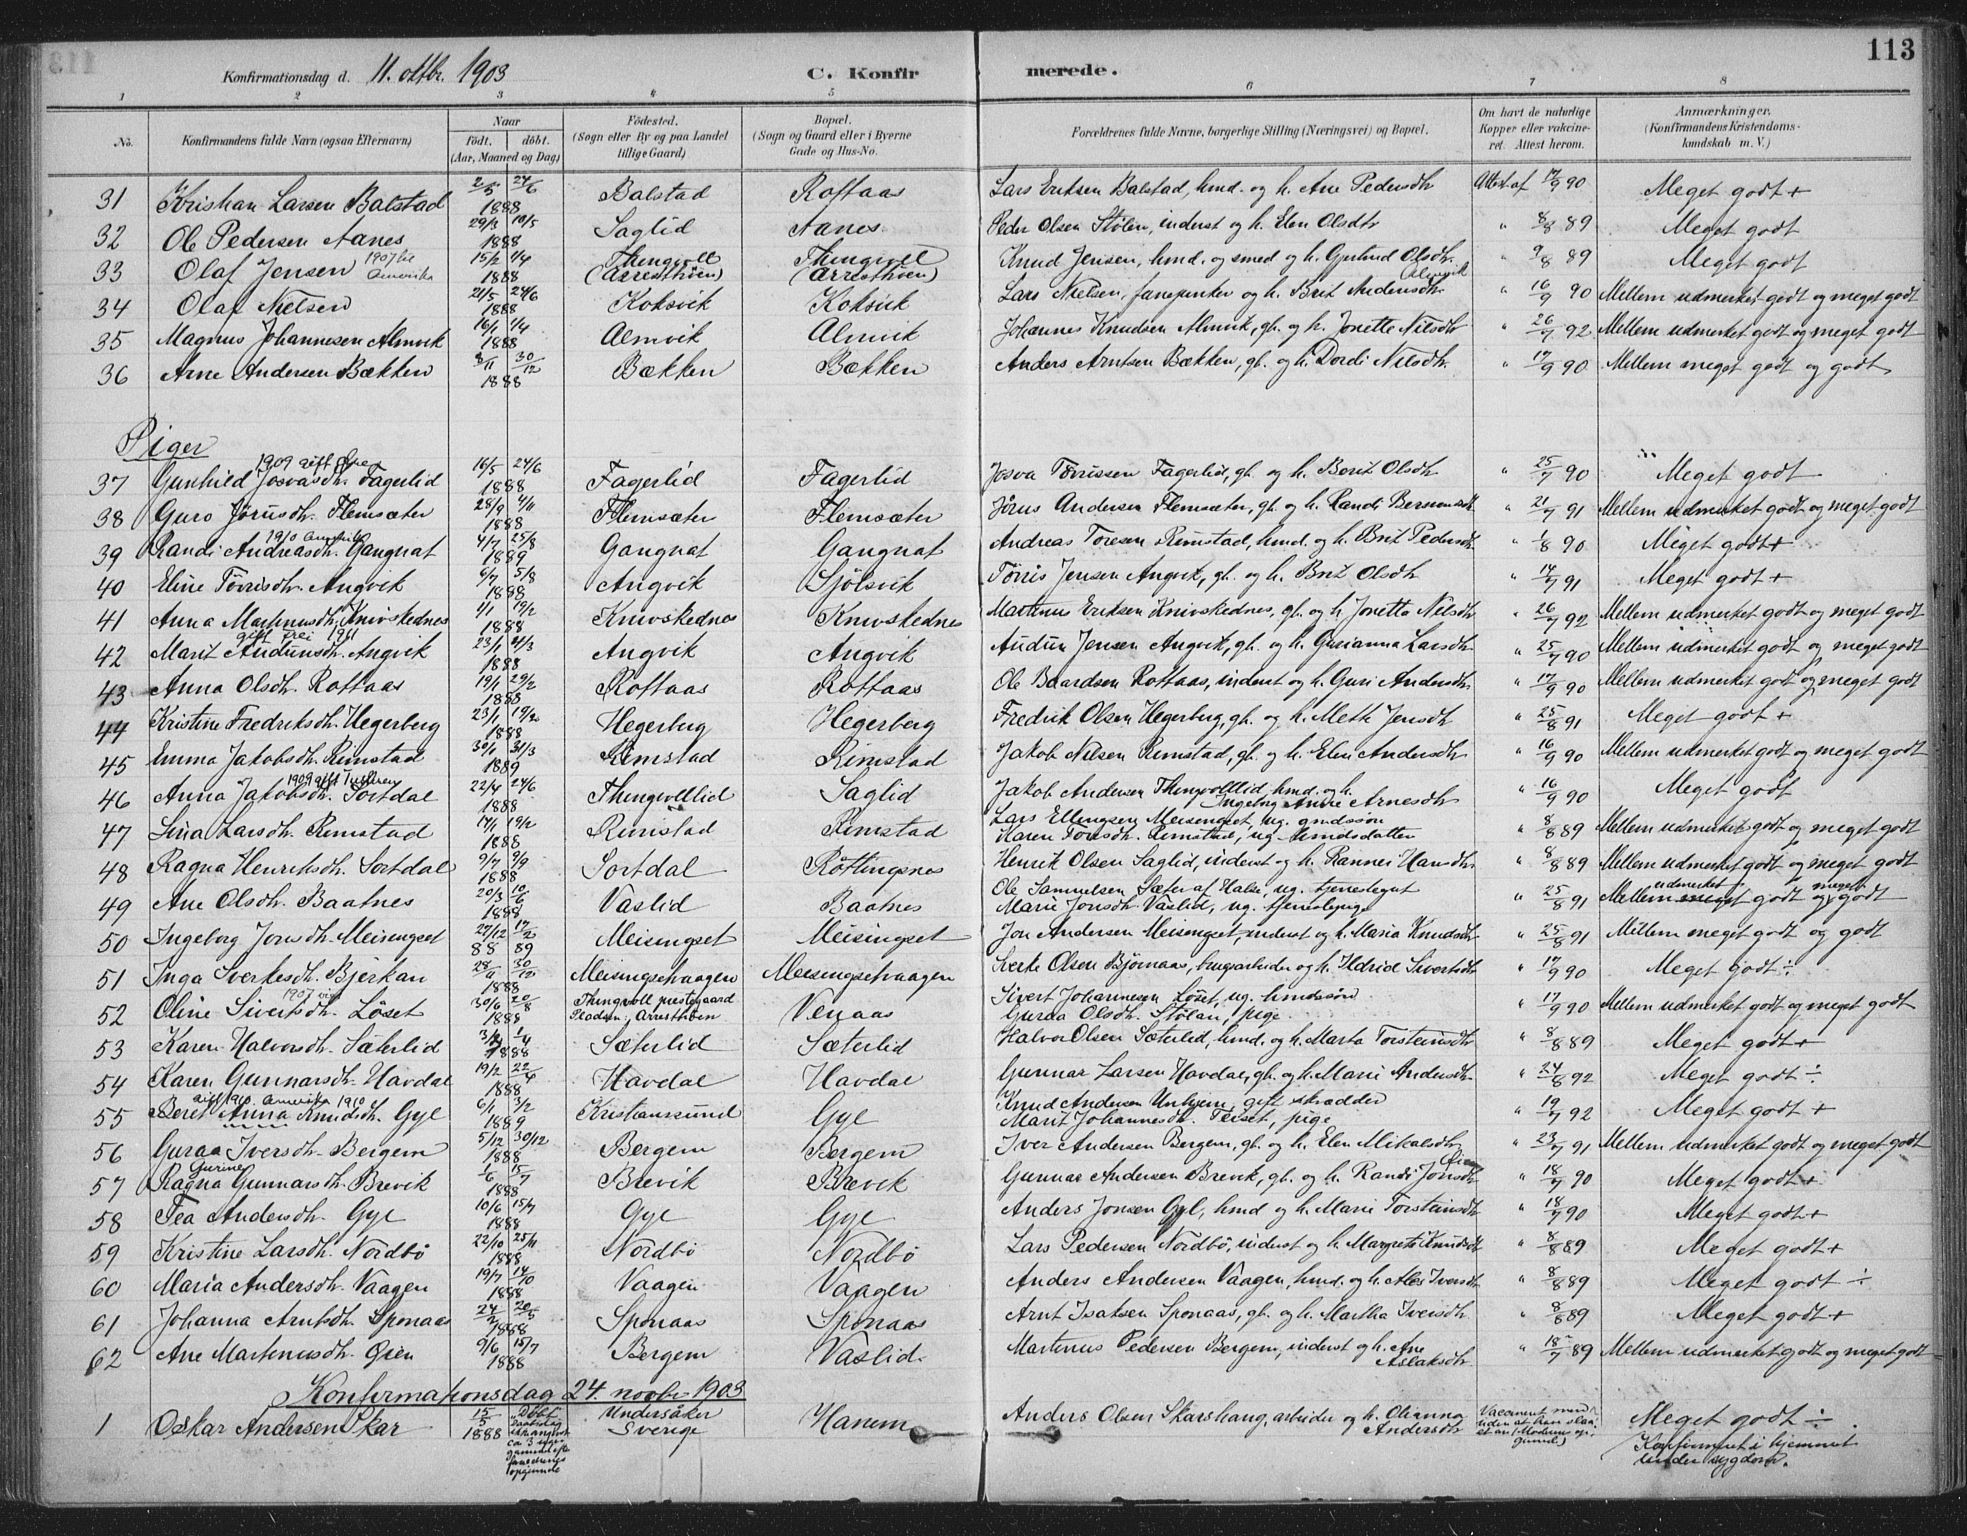 113
Konfirmationsdag d. 11. oktbr. 1903
C. Konfirmerede.
1 2 3 4 5 6 7 8
No. | Konfirmandens fulde Navn (ogsaa Efternavn) | Naar født, døbt. (Aar, Maaned og Dag) | Fødested. (Sogn eller By og paa Landet tillige Gaard) | Bopæl. (Sogn og Gaard eller i Byerne Gade og Hus-No. | Forældrenes fulde Navne, borgerlige Stilling (Næringsvei) og Bopæl. | Om havt de naturlige Kopper eller vaccineret. Attest herom. | Anmærkninger. (Konfirmandens Kristendomskundskab m. V.)
31 Kristian Larsen Balstad 2/5 24/6 1888 Balstad Rottaas Lars Eriksen Balstad, hmd. og h. Ane Pedersdtr Attest af 17/9 90 Meget godt +
32 Ole Pedersen Aanes 29/3 10/5 1888 Saglid Aanes Peder Olsen Stølen, inderst og h. Elen Olsdtr " 8/8 89 Meget godt
33 Olaf Jensen 1907 til Amerika 15/2 1/4 1888 Thingvoll (Arresthuen) Thingvoll (Arresthuen) Knud Jensen, hmd. og smed og h. Gjertrud Olsdtr. " 9/8 89 Meget godt
34 Olaf Nielsen 21/5 24/6 1888 Koksvik Koksvik Lars Nielsen, fanejunker og h. Brit Andersdtr. Almvik " 16/9 90 Mellem udmerket godt og meget godt
35 Magnus Johannesen Almvik 16/1 1/4 1888 Almvik Almvik Johannes Knudsen Almvik, gb. og h. Jonette Nilsdtr " 26/7 92 Mellem udmerket godt og meget godt
36 Arne Andersen Bækken 3/11 30/12 1888 Bækken Bækken Anders Arntsen Bækken, gb. og h. Dordi Nilsdtr. " 17/9 90 Mellem meget godt og godt
Piger
37 Gunhild Josvasdtr. Fagerlid 1909 gift 16/5 24/6 1888 Fagerlid Fagerlid Josva Tørrissen Fagerlid, gb. og h. Berit Olsdtr. " 25/7 90 Meget godt
38 Guro Jørusdtr. Flemsæter 28/9 4/11 1888 Flemsæter Flemsæter Jørus Andersen Flemsæter, gb. og h. Randi " 21/7 91 Mellem udmerket godt og meget godt
39 Randi Andreasdtr. Gangnat 1910 Amerika 4/7 25/8 1889 Gangnat Gangnat Andreas Toresen Rimstad, hmd. og h. Brit Pedersdtr. " 1/8 90 Meget godt +
40 Eline Tørrisdtr. Angvik 6/7 5/8 1888 Angvik Sjølsvik Tørris Jensen Angvik, gb. og h. Brit Olsdtr " 14/7 91 Meget godt +
41 Anna Martinusdtr. Knivskednes 4/1 19/2 1888 Knivskednes Knivskednes Martinus Eriksen Knivskednes, gb. og h. Jonetta Nilsdtr " 26/7 92 Mellem udmerket godt og meget godt
42 Marit Audunsdtr. Angvik gift Frei 1911 23/1 21/3 1888 Angvik Angvik Audun Jensen Angvik, gb. og h. Gusianna Larsdtr " 25/7 90 Mellem udmerket godt og meget godt
43 Anna Olsdtr. Rottaas 19/1 29/2 1888 Rottaas Rottaas Ole Baardsen Rottaas, inderst og h. Guri Andersdtr. " 17/9 90 Mellem udmerket godt og meget godt
44 Kristine Fredriksdtr. Hegerberg 23/1 19/2 1888 Hegerberg Hegerberg Fredrik Olsen Hegerberg, gb. og h. Meth Jensdtr " 25/8 91 Meget godt +
45 Emma Jakobsdtr. Rimstad 30/1 31/3 1889 Rimstad Rimstad Jakob Nilsen Rimstad, gb. og h. Elen Andersdtr " 16/9 90 Mellem udmerket godt og meget godt
46 Anna Jakobsdtr. Sortdal 1909 gift Tustern 22/4 24/6 1888 Thingvollid Saglid Jakob Andersen Thingvollid hmd. og h. Ingeborg Andre Arnesdtr " 16/9 90 Meget godt
47 Lina Larsdtr. Rimstad 17/1 19/2 1888 Rimstad Rimstad Lars Ellingsen Meisingset, ug. gmdssøn Karen Toresdtr. Rimstad, ug. hmdsdatter " 8/8 89 Mellem udmerket godt og meget godt
48 Ragna Henriksdtr. Sortdal 9/7 9/9 1888 Sortdal Røttingsnes Henrik Olsen Saglid, inderst og h. Rannei Hansdtr " 8/8 89 Mellem udmerket godt og meget godt
49 Ane Olsdtr. Baatnes 20/3 10/6 1888 Vaslid Baatnes Ole Samuelsen Sæter af Halse, ug. tjenestegut Marie Jonsdtr. Vaslid, ug. tjenestepige " 25/8 91 Mellem meget udmerket godt og meget godt
50 Ingeborg Jonsdtr. Meisingset 27/12 88 17/2 89 Meisingset Meisingset Jon Andersen Meisingset, inderst og h. Maria Knudsdtr " 25/8 91 Mellem meget godt og godt
51 Inga Sverkesdtr. Bjerkan 28/9 30/12 1888 Meisingsetvaagen Meisingsetvaagen Sverke Olsen Bjørnaas, brugsarbeider og h. Ildrid Sivertsdtr " 17/9 90 Meget godt ÷
52 Oline Sivertsdtr. Løset 1907 30/6 20/8 1888 Thingvoll prestegaard Pladsen: Arresthuen Venaas Sivert Johannesen Løset, ug. hmdssøn Guraa Olsdtr. Stølan, pige " 17/9 90 Mellem udmerket godt og meget godt
53 Karen Halvorsdtr. Sæterlid 1/4 1888 Sæterlid Sæterlid Halvor Olsen Sæterlid, hmd. og h. Marta Torsteinsdtr " 8/8 89 Meget godt +
54 Karen Gunnarsdtr. Havdal 19/2 22/4 1888 Havdal Havdal Gunnar Larsen Havdal, gb. og h. Marie Andersdtr. " 24/8 92 Meget godt ÷
55 Beret Anna Knudsdtr. Gye gift 1910. Amerika 1910 6/1 3/2 1889 Kristianssund Gye Knud Andersen Unhjem, gift skrædder Marit Johannesdtr. Teiset, pige " 19/7 92 Meget godt +
56 Guraa Iversdtr. Bergem 5/12 30/12 1888 Bergem Bergem Iver Andersen Bergem, gb. og h. Elen Mikalsdtr " 23/7 91 Mellem udmerket godt og meget godt
57 Ragna Gurine Gunnarsdtr. Brevik 1/6 15/7 1888 Brevik Brevik Gunnar Andersen Brevik, gb. og h. Randi Jonsdtr. " 18/7 90 Meget godt +
58 Fea Andersdtr. Gye 10/6 15/7 1888 Gye Gye Anders Jonsen Gye, hmd og h. Marie Torsteinsdtr " 18/7 90 Meget godt +
59 Kristine Larsdtr. Nordbø 22/10 25/11 1888 Nordbø Nordbø Lars Pedersen Nordbø, inderst og h. Margrete Knudsdtr " 8/8 89 Meget godt +
60 Maria Andersdtr. Vaagen 19/7 14/10 1888 Vaagen Vaagen Anders Andersen Vaagen, hmd. og h. Ales Iversdtr " 8/8 89 Meget godt ÷
61 Johanna Arntsdtr. Sponaas 24/2 20/5 1888 Sponaas Sponaas Arnt Isaksen Sponaas, gb. og h. Martha Iversdtr. " 8/8 89 Meget godt +
62 Ane Martinusdtr. Øien 9/6 15/7 1888 Bergem Vaslid. Martinus Pedersen Bergem, inderst og h. Ane Aslaksdtr. " 18/7 89 Mellem udmerket godt og meget godt
Konfirmationsdag 24. novbr 1903
1 Oskar Andersen Skar 15/5 1888 "Døbt Undersåker Sverige Hanem Anders Olsen Skarshaug, arbeider og h. Olianna Andersdtr Vaccineret men uden at han Meget godt ÷ Konfirmeret i hjemmet under sygdom.